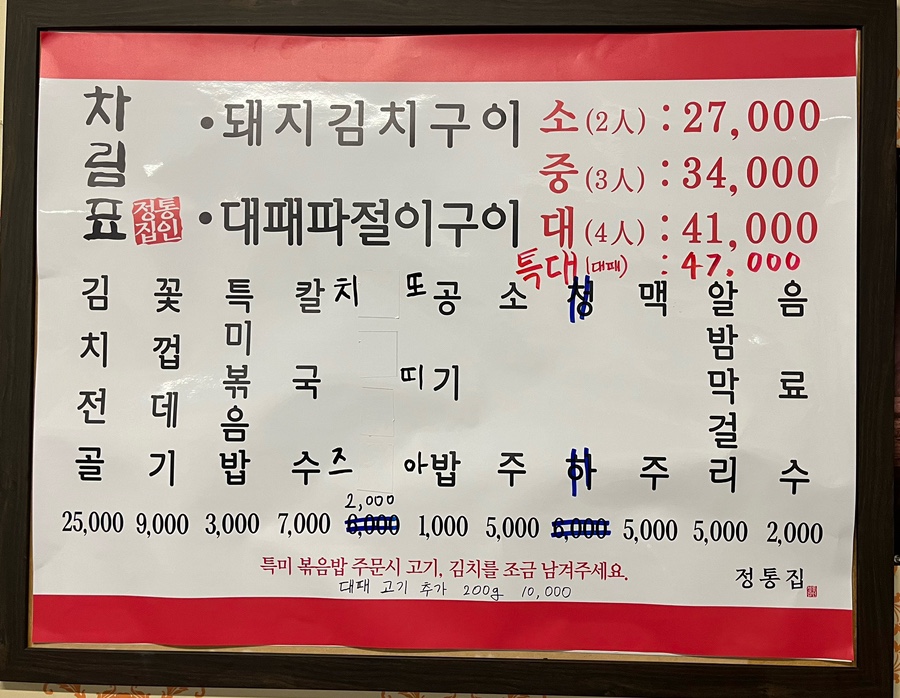 차림표
정통
집인
• 돼지김치구이
• 대패파절이구이
소 (2人) : 27,000
중 (3人) : 34,000
대 (4人) : 41,000
특대 (대패) : 47.000
김치전골 25,000
꽃껍데기 9,000
특미볶음밥 3,000
칼국수 7,000
치즈 또띠아 2,000 6,000
공기밥 1,000
소주 5,000
청하 6,000
맥주 5,000
알밤막걸리 5,000
음료수 2,000
특미 볶음밥 주문시 고기, 김치를 조금 남겨주세요.
대패 고기 추가 200g 10,000
정통집